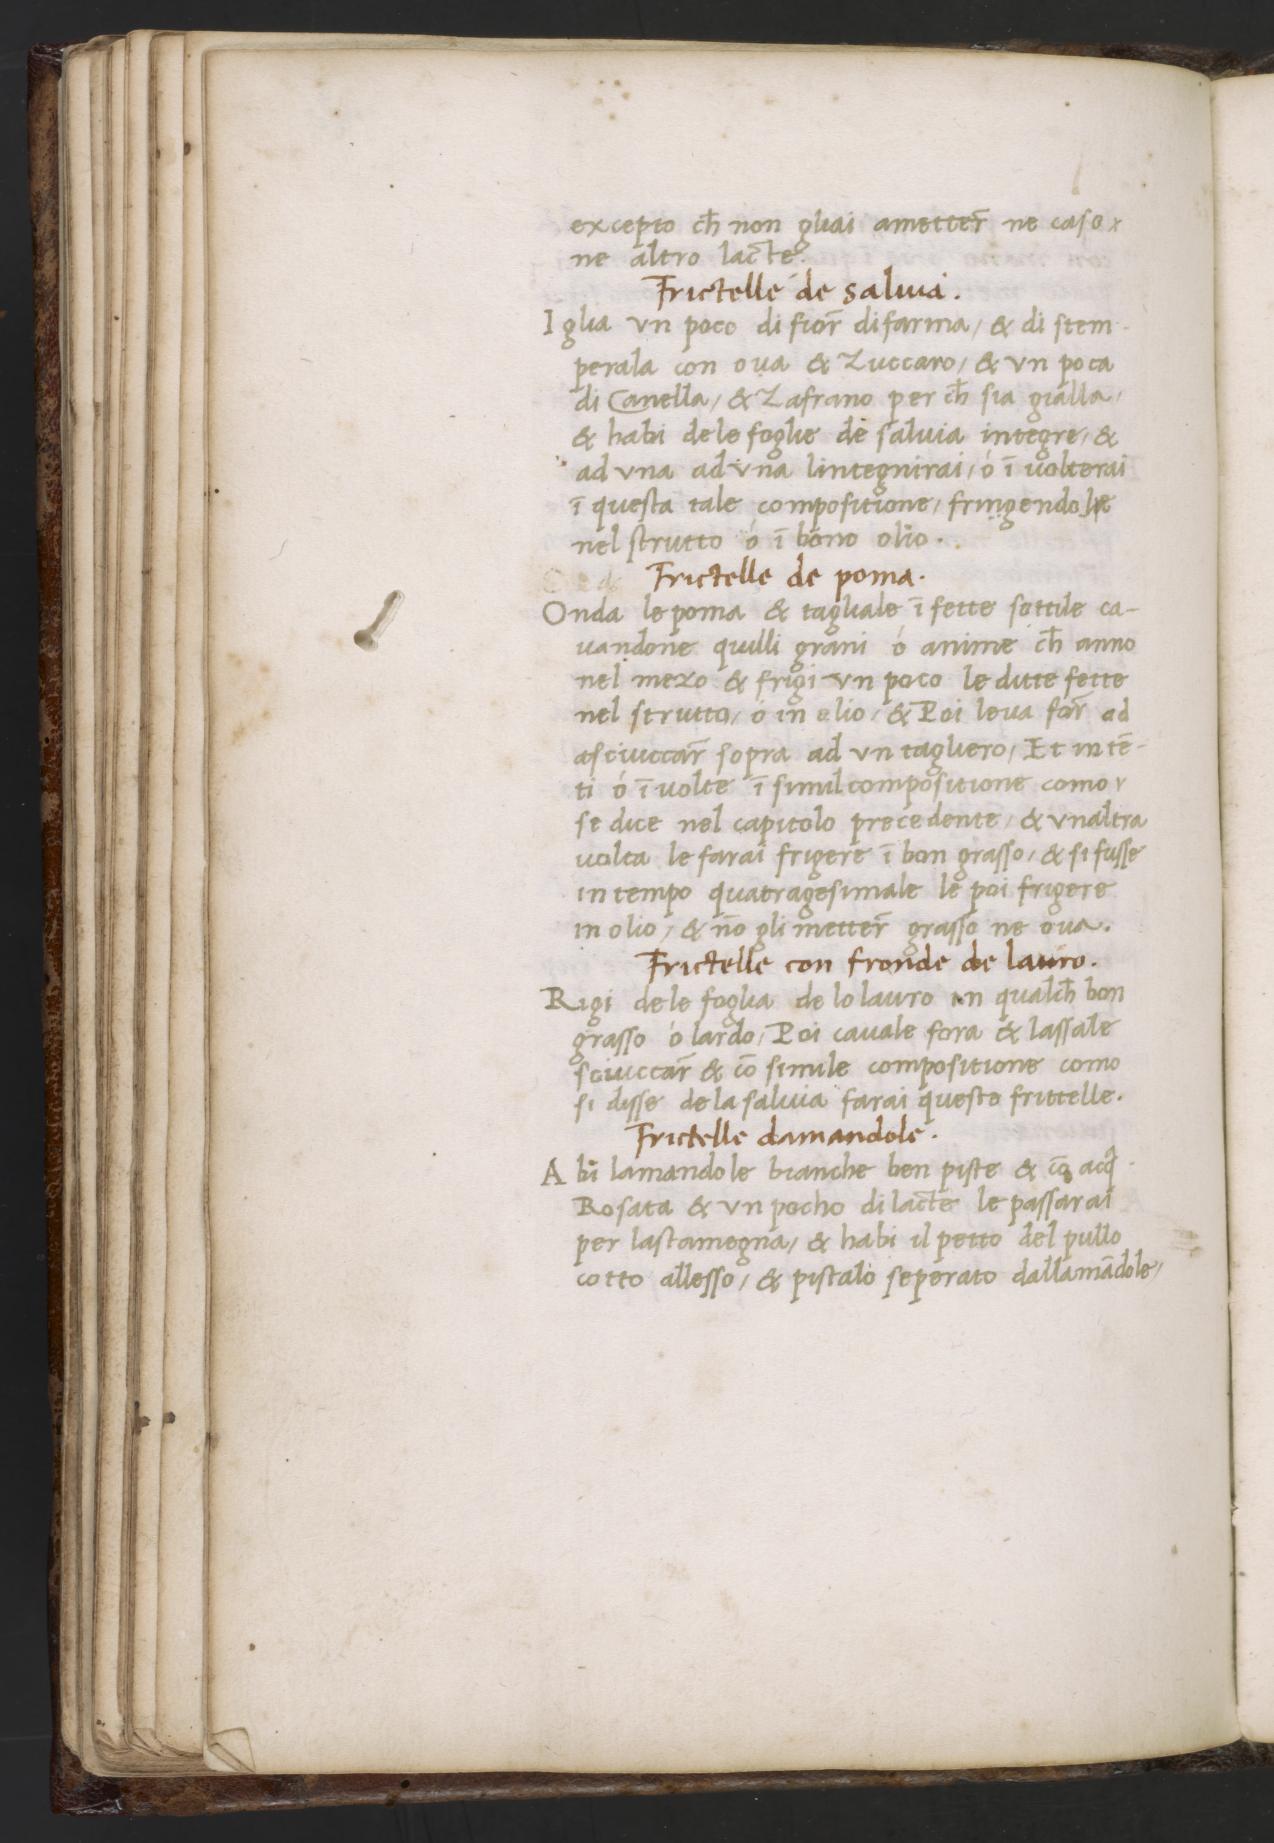 excepto ch̄ non gliai ametter̄ ne caso
ne altro lacte.
Frictelle de salvia.
Iglia vn poco di fior̄ di farina, & di stem-
perala con oua & Zuccaro, & vn poca
di Canella, & Zafrano per ch̄ sia gialla,
& habi dele foglie de saluia integre, &
ad vna ad vna lintegnirai, ó ī uolterai
ī questa tale compositione, fringendole
nel strutto ó ī bono olio.
Frictelle de poma.
Onda le poma & tagliale ī fette sottile ca-
uandone quilli grani ó anime ch̄ anno
nel mezo & frigi vn poco le ditte fette
nel strutto, ó in olio, & Poi leua for̄ ad
asciuccar̄ sopra ad vn tagliero, Et in tē-
ti ó ī uolte ī simil compositione como
se dice nel capitolo precedente, & vnaltra
uolta le farai frigere ī bon grasso, & si fusse
in tempo quatragesimale le poi frigere
in olio, & nō gli metter̄ grasso ne oua.
Frictelle con fronde de lauro.
Rigi dele foglia de lo lauro in qualch̄ bon
grasso ó lardo, Poi cauale fora & lassale
sciuccar̄ & cō simile compositione como
si disse de la saluia farai queste frittelle.
Frictelle damandole.
Abi lamandole bianche ben piste & cō acq̄
Rosata & vn pocho di lacte le passarai
per lastamegna, & habi il petto del pullo
cotto allesso, & pistalo seperato dallamādole,